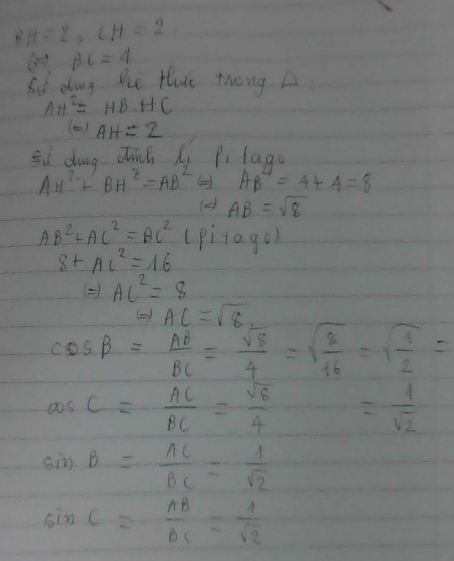 BH = 2 ; CH = 2
(=) BC = 4
Sử dụng hệ thức trong Δ
AH² = HB.HC
(=) AH = 2
Sử dụng định lí Pitago
AH² + BH² = AB² (=) AB² = 4 + 4 = 8
(=) AB = √8
AB² + AC² = BC² (Pitago)
8 + AC² = 16
(=) AC² = 8
(=) AC = √8
cos B = AB/BC = √8/4 = √(8/16) = √(1/2) =
cos C = AC/BC = √8/4 = 1/√2
sin B = AC/BC = 1/√2
sin C = AB/BC = 1/√2